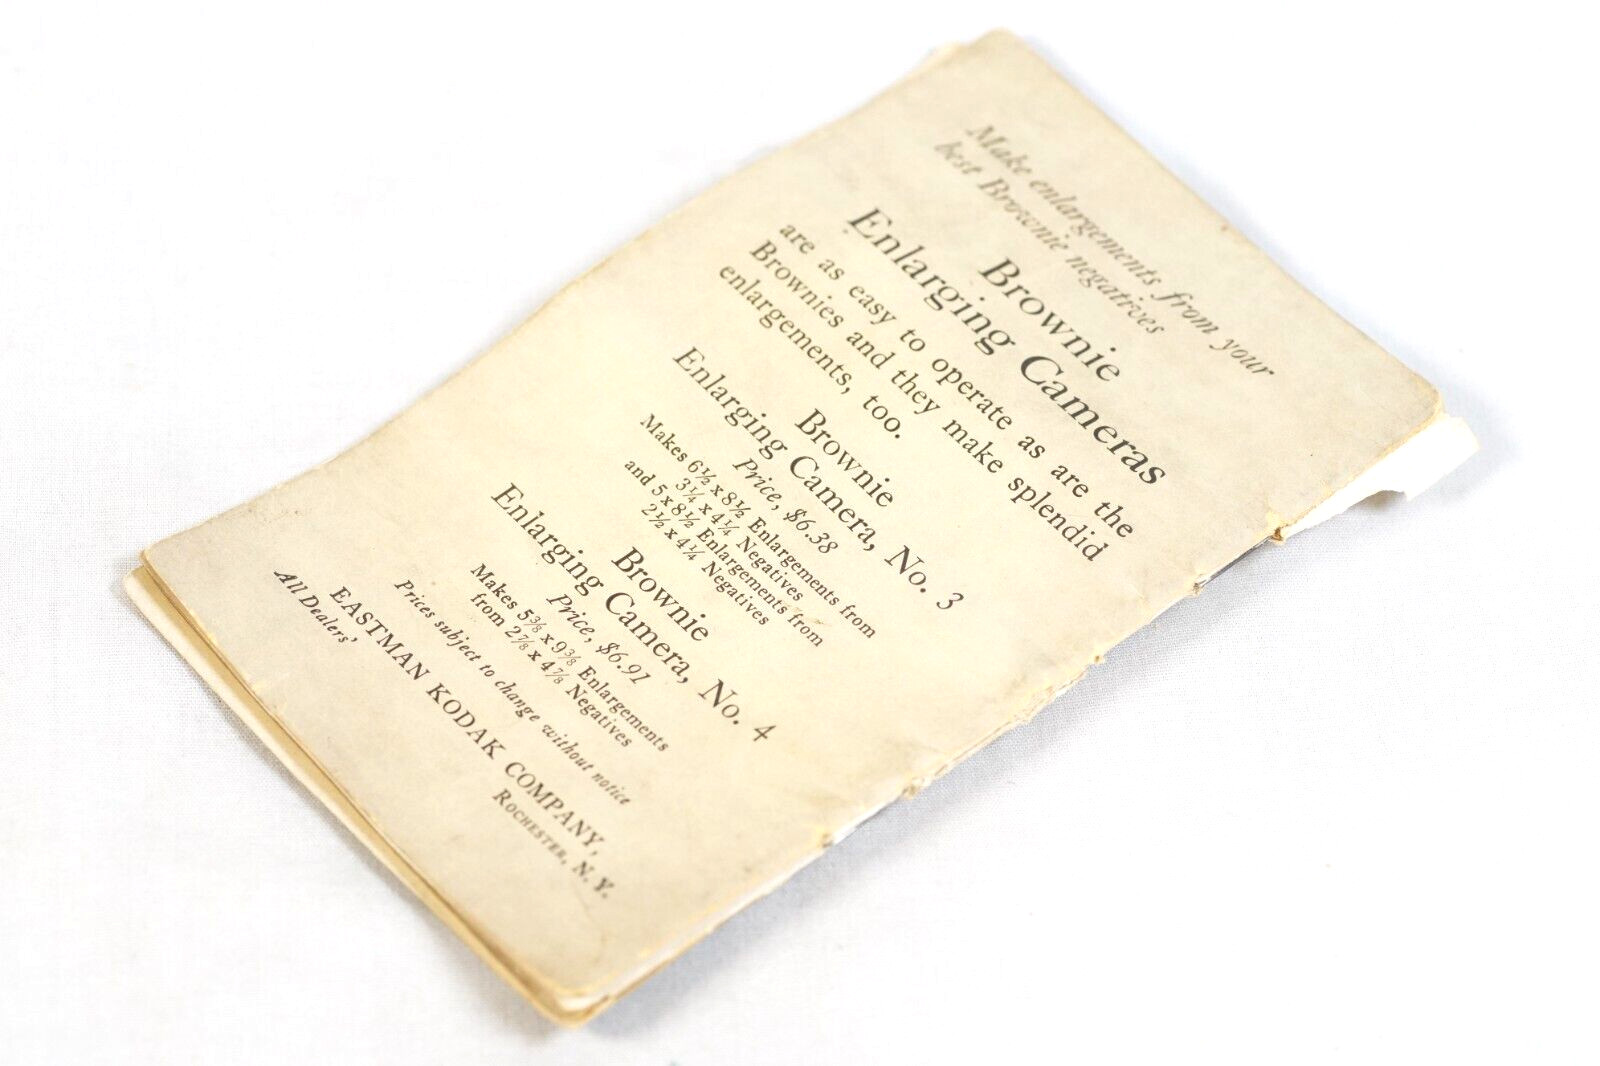 Make enlargements from your
best Brownie negatives
Brownie
Enlarging Cameras
are as easy to operate as are the
Brownies and they make splendid
enlargements, too.
Brownie
Enlarging Camera, No. 3
Price, $6.38
Makes 6½ x 8½ Enlargements from
3¼ x 4¼ Negatives
and 5 x 8½ Enlargements from
2½ x 4¼ Negatives
Brownie
Enlarging Camera, No. 4
Price, $6.91
Makes 5⅜ x 9⅜ Enlargements
from 2⅞ x 4⅞ Negatives
Prices subject to change without notice
EASTMAN KODAK COMPANY,
ROCHESTER, N. Y.
All Dealers'